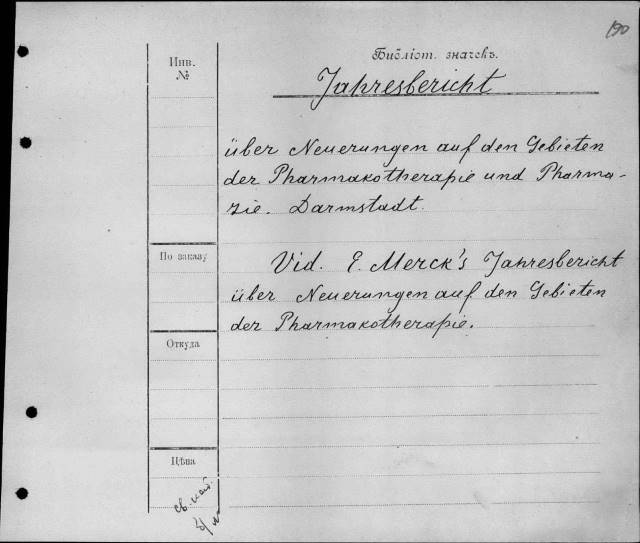 190
Библіот. значекъ.
Инв.
№
Jahresbericht
über Neuerungen auf den Gebieten
der Pharmakotherapie und Pharma-
zie. Darmstadt.
По заказу
Vid. E. Merck's Jahresbericht
über Neuerungen auf den Gebieten
der Pharmakotherapie.
Откуда
Цѣна
св. кат.